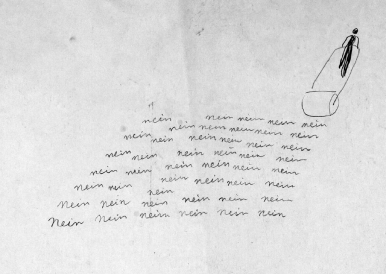 nein nein nein nein nein
nein nein nein nein nein nein
nein nein nein nein nein
nein nein nein nein nein
nein nein nein nein nein nein
nein nein nein nein nein
nein
nein nein nein nein nein nein
Nein nein nein nein nein nein